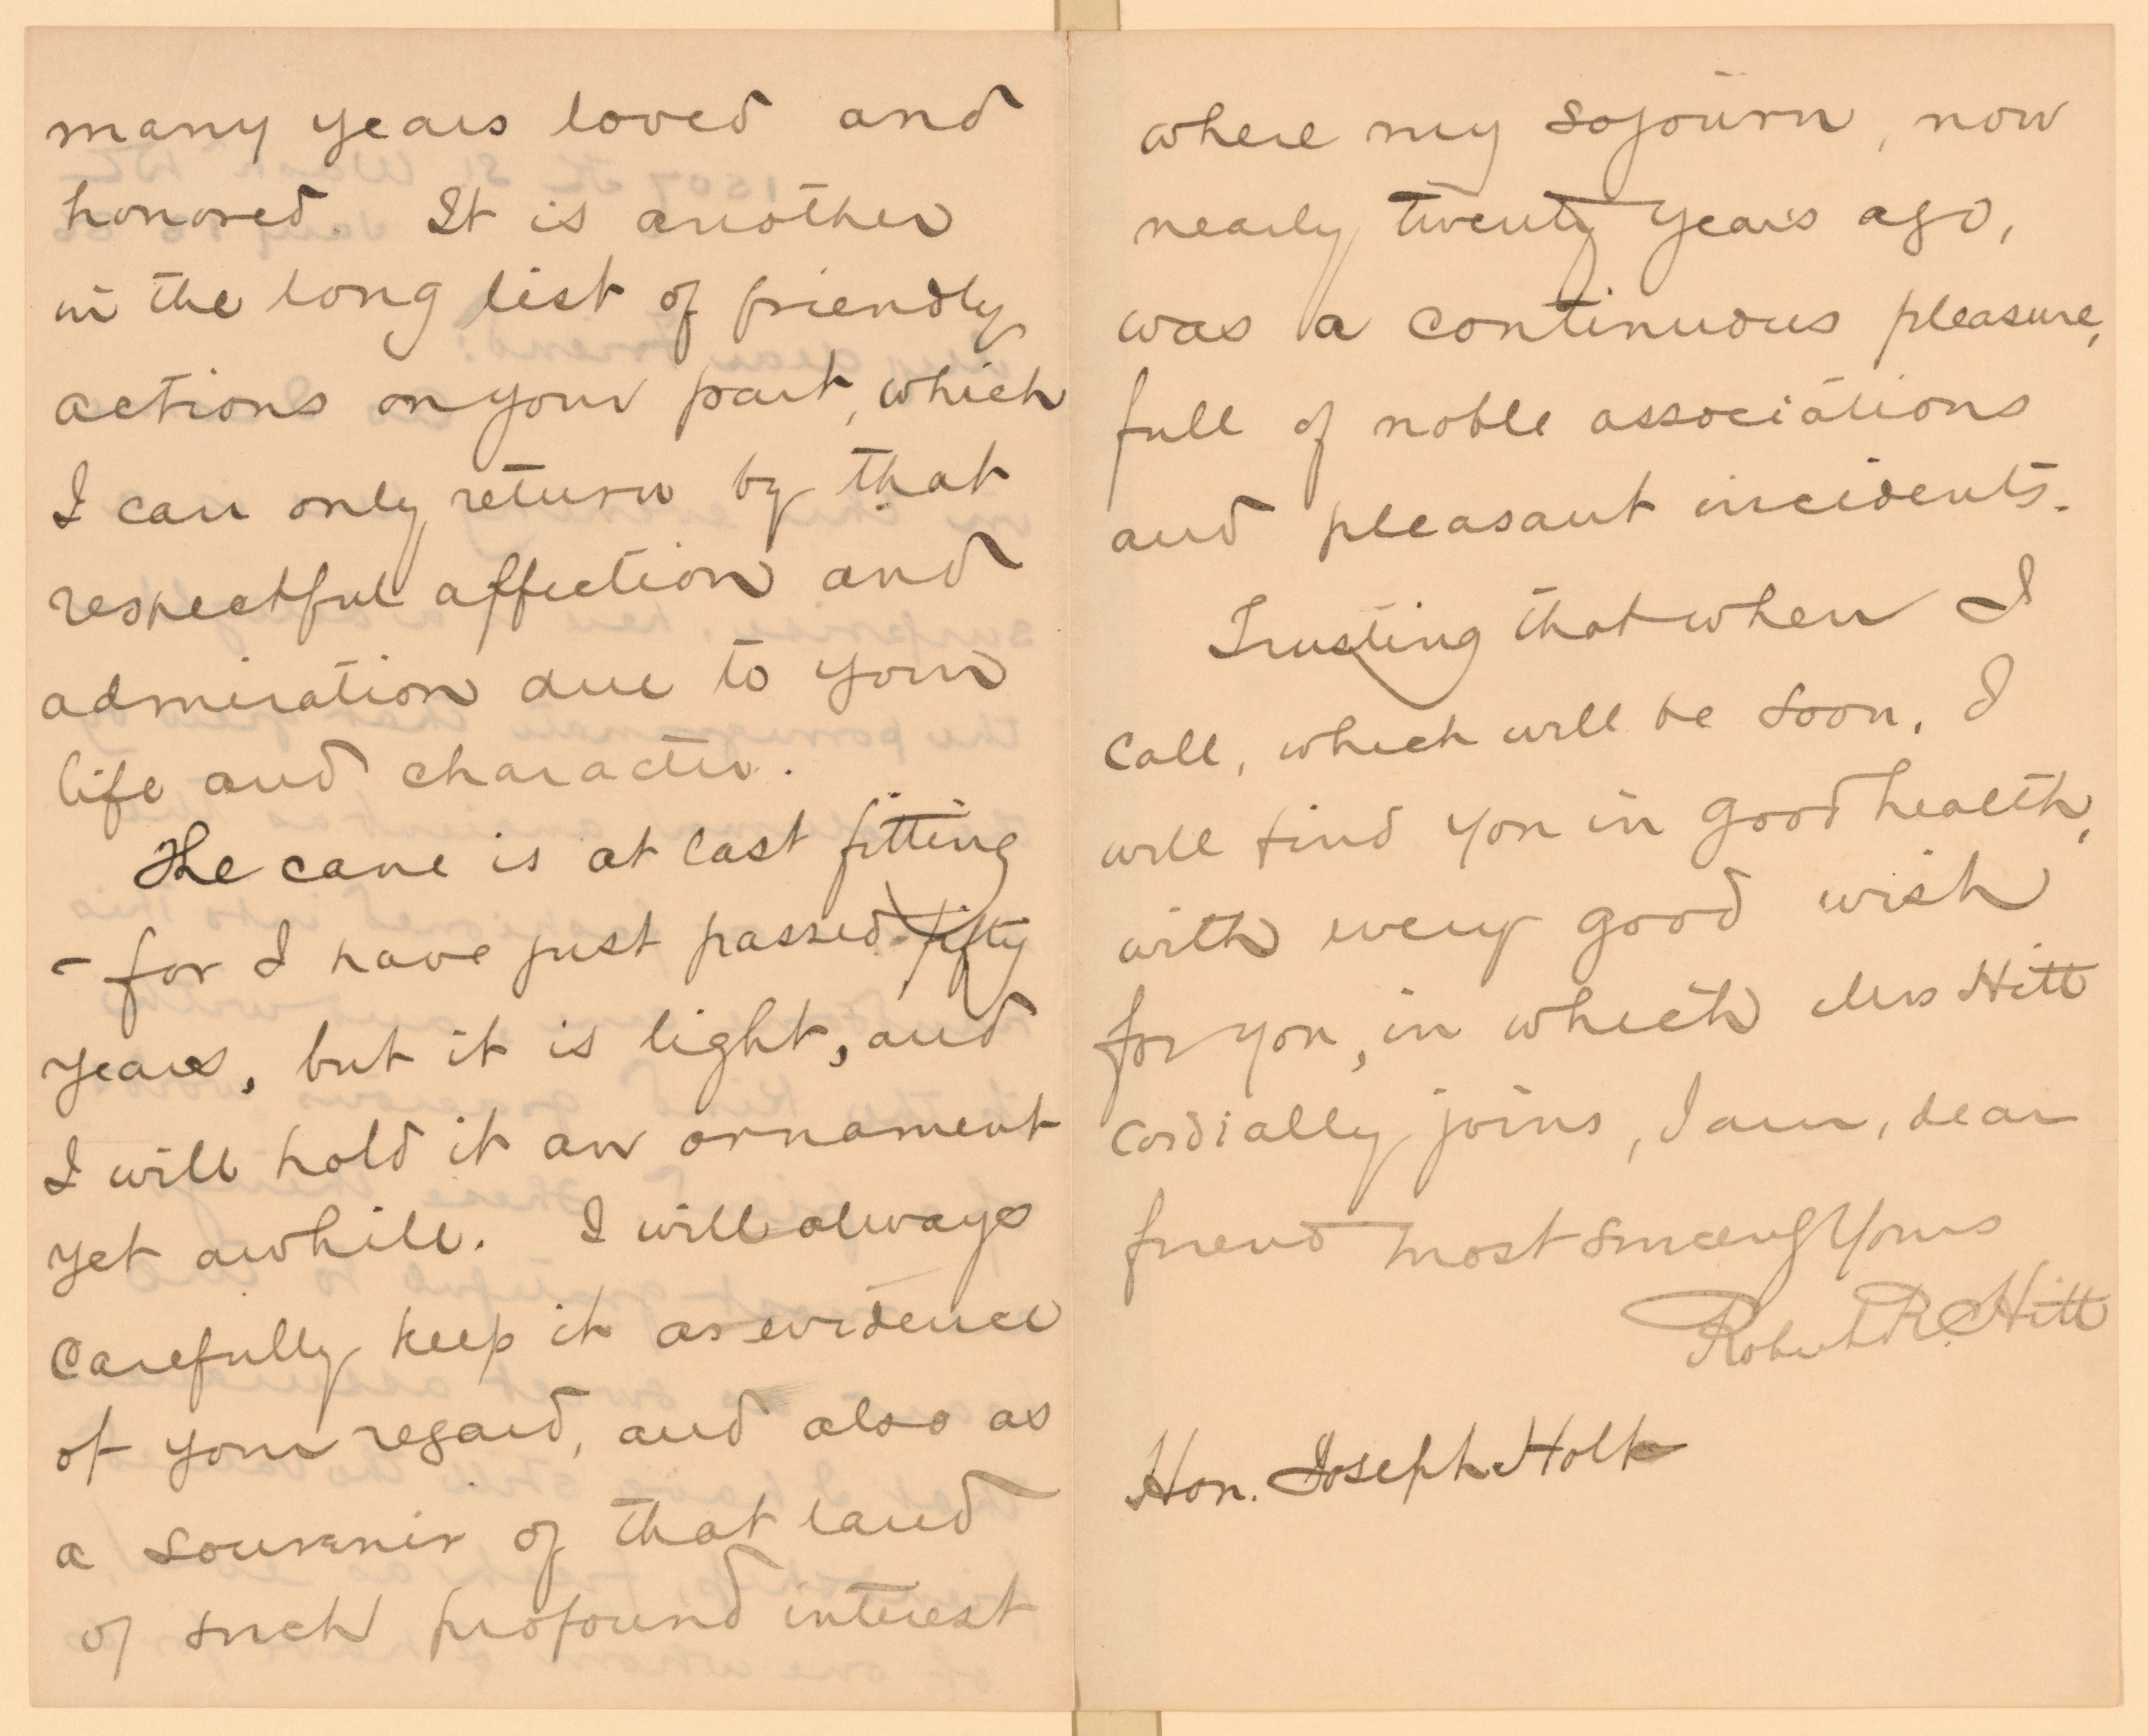 many years loved and
honored. It is another
in the long list of friendly
actions on your part, which
I can only return by that
respectful affection and
admiration due to your
life and character.
The cane is at last fitting
- for I have just passed fifty
years, but it is light, and
I will hold it an ornament
yet awhile. I will always
carefully keep it as evidence
of your regard, and also as
a souvenir of that land
of such profound interest
where my sojourn, now
nearly twenty years ago,
was a continuous pleasure,
full of noble associations
and pleasant incidents.
Trusting that when I
call, which will be soon, I
will find you in good health,
with every good wish
for you, in which Mrs Hitt
cordially joins, I am, dear
friend most sincerely Yours
Robert R. Hitt
Hon. Joseph Holt